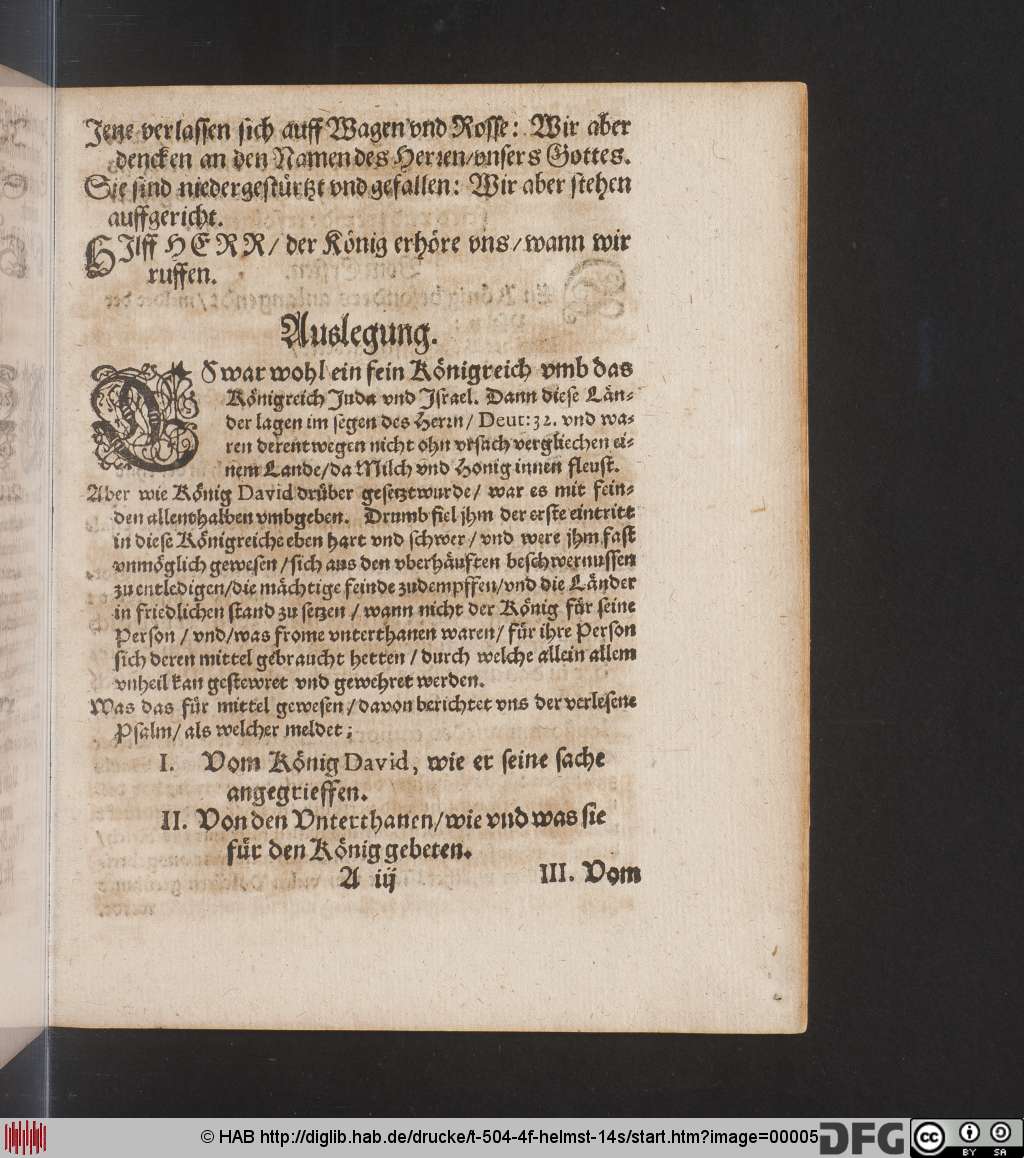 Jene verlassen sich auff Wagen vnd Rosse: Wir aber
dencken an den Namen des Herren/vnsers Gottes.
Sie sind niedergestürtzt vnd gefallen: Wir aber stehen
auffgericht.
HIlff HERR/ der König erhöre vns/wann wir
ruffen.
Auslegung.
ES war wohl ein fein Königreich vmb das
Königreich Juda vnd Israel. Dann diese Län-
der lagen im segen des Herrn/ Deut: 32. vnd wa-
ren derentwegen nicht ohn vrsach vergliechen ei-
nem Lande/da Milch vnd Honig innen fleust.
Aber wie König David drüber gesetzt wurde/ war es mit fein-
den allenthalben vmbgeben. Drumb fiel jhm der erste eintritt
in diese Königreiche eben hart vnd schwer/ vnd were jhm fast
vnmöglich gewesen/sich aus den vberhäuften beschwernussen
zu entledigen/die mächtige feinde zudempffen/vnd die Länder
in friedlichen stand zu setzen/ wann nicht der König für seine
Person/ vnd/was frome vnterthanen waren/ für ihre Person
sich deren mittel gebraucht hetten/ durch welche allein allem
vnheil kan gestewret vnd gewehret werden.
Was das für mittel gewesen/davon berichtet vns der verlesene
Psalm/ als welcher meldet;
I. Vom König David, wie er seine sache
angegrieffen.
II. Von den Vnterthanen/wie vnd was sie
für den König gebeten.
A iij III. Vom
© HAB http://diglib.hab.de/drucke/t-504-4f-helmst-14s/start.htm?image=00005
DFG
cc BY SA